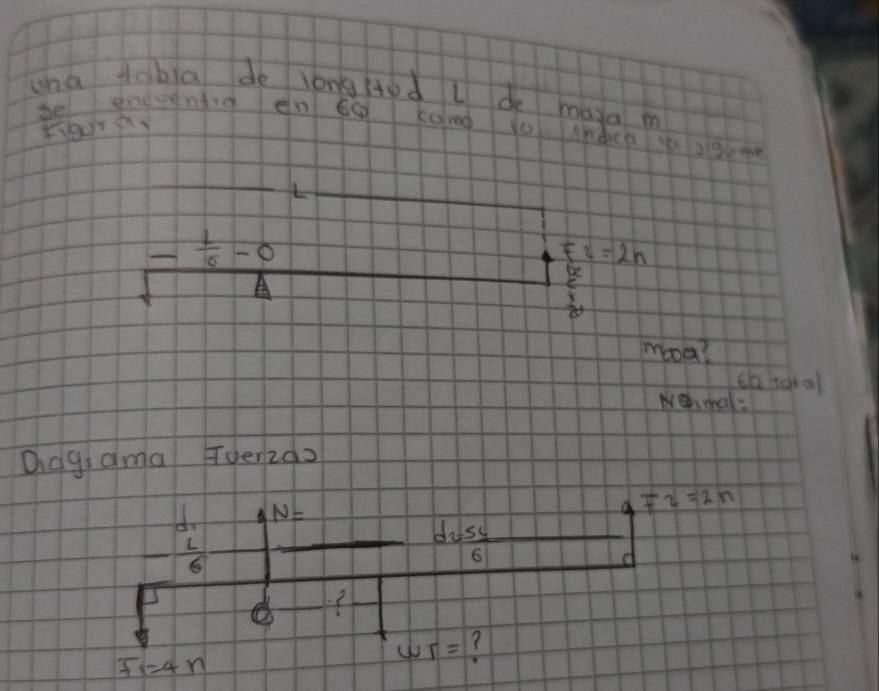 una tabla de longitud L de masa m
se encuentra en EQ como lo indica la siguiente
figura.
L
L/6 - O
F2 = 2n
masa?
EQ total
Normal =
Diagrama Fuerzas
N =
F2 = 2n
d1
L/6
d2 5L/6
?
WT = ?
F1 = 4n